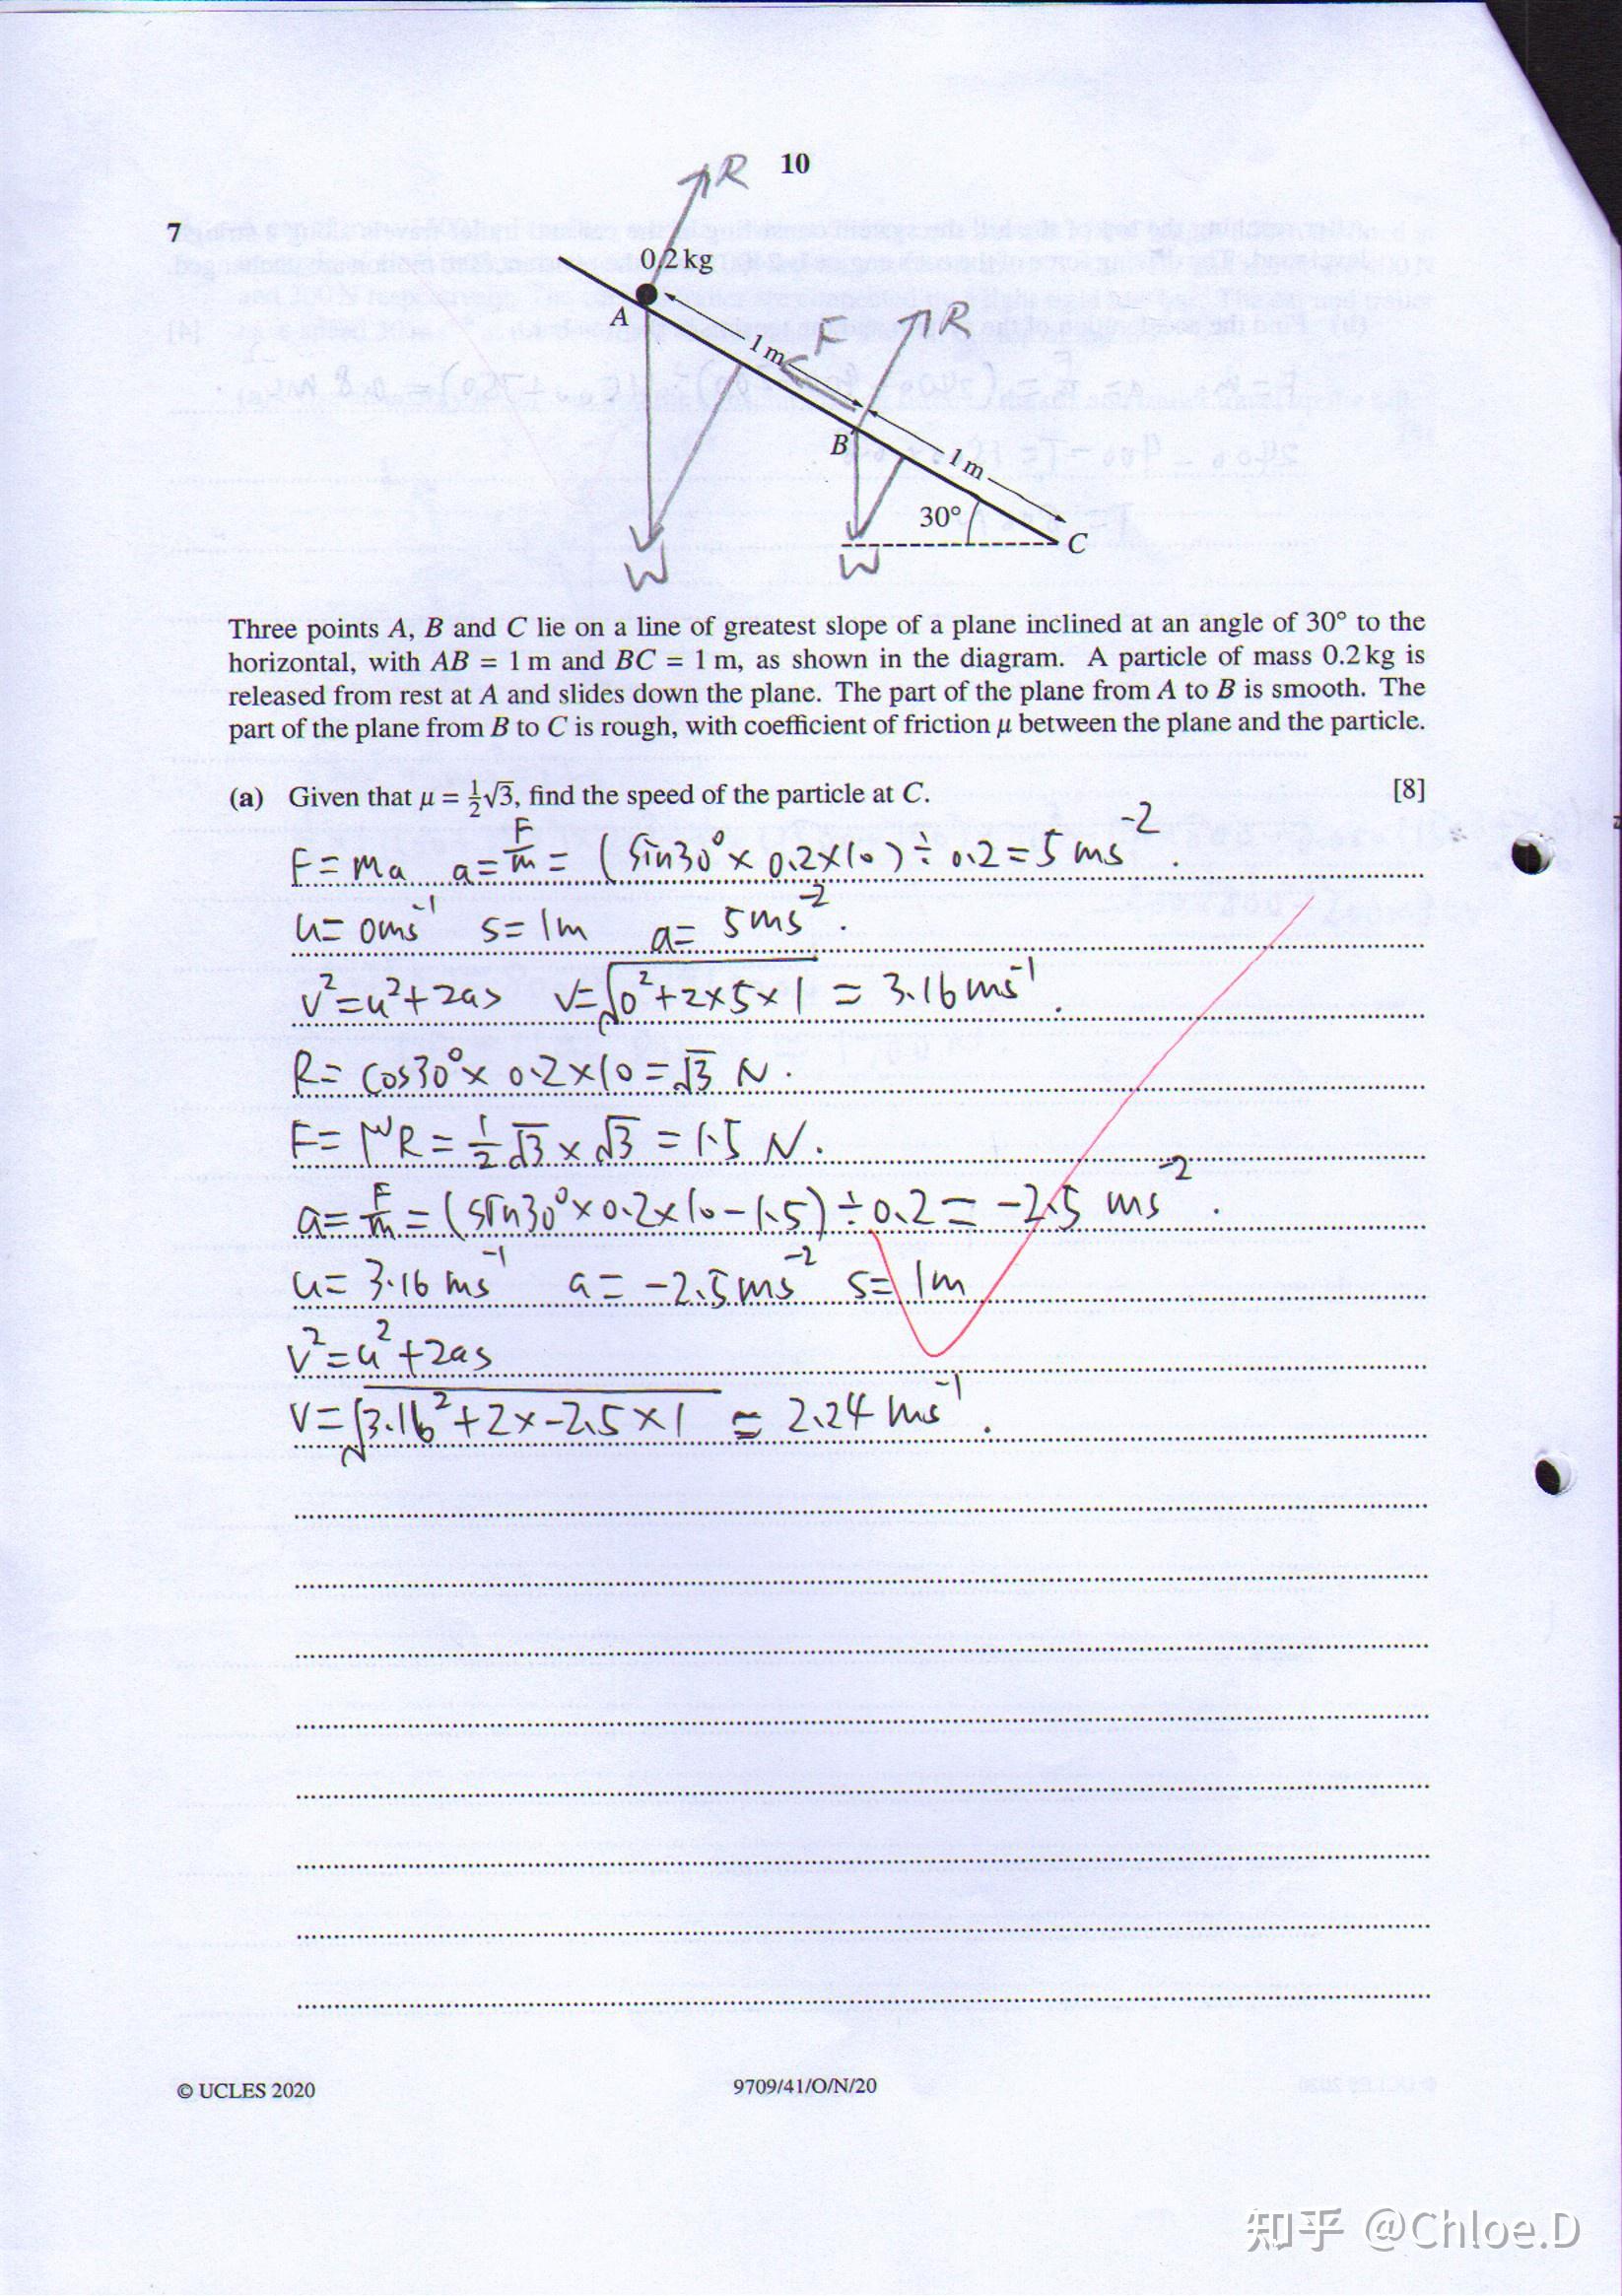 10
R
7
0.2 kg
A
1 m
F
R
B
1 m
30°
C
W
W
Three points A, B and C lie on a line of greatest slope of a plane inclined at an angle of 30° to the
horizontal, with AB = 1 m and BC = 1 m, as shown in the diagram. A particle of mass 0.2 kg is
released from rest at A and slides down the plane. The part of the plane from A to B is smooth. The
part of the plane from B to C is rough, with coefficient of friction μ between the plane and the particle.
(a) Given that μ = ½√3, find the speed of the particle at C. [8]
F=ma a=F/m = (sin30°×0.2×10)÷0.2=5 ms⁻².
u=0ms⁻¹ s=1m a= 5ms⁻².
v²=u²+2as v=√(0²+2×5×1) = 3.16ms⁻¹.
R= cos30°×0.2×10=√3 N.
F=μR=½√3×√3=1.5 N.
a=F/m=(sin30°×0.2×10-1.5)÷0.2=-2.5 ms⁻².
u=3.16 ms⁻¹ a=-2.5ms⁻² s=1m
v²=u²+2as
v=√(3.16²+2×-2.5×1) = 2.24ms⁻¹.
© UCLES 2020
9709/41/O/N/20
知乎 @Chloe.D